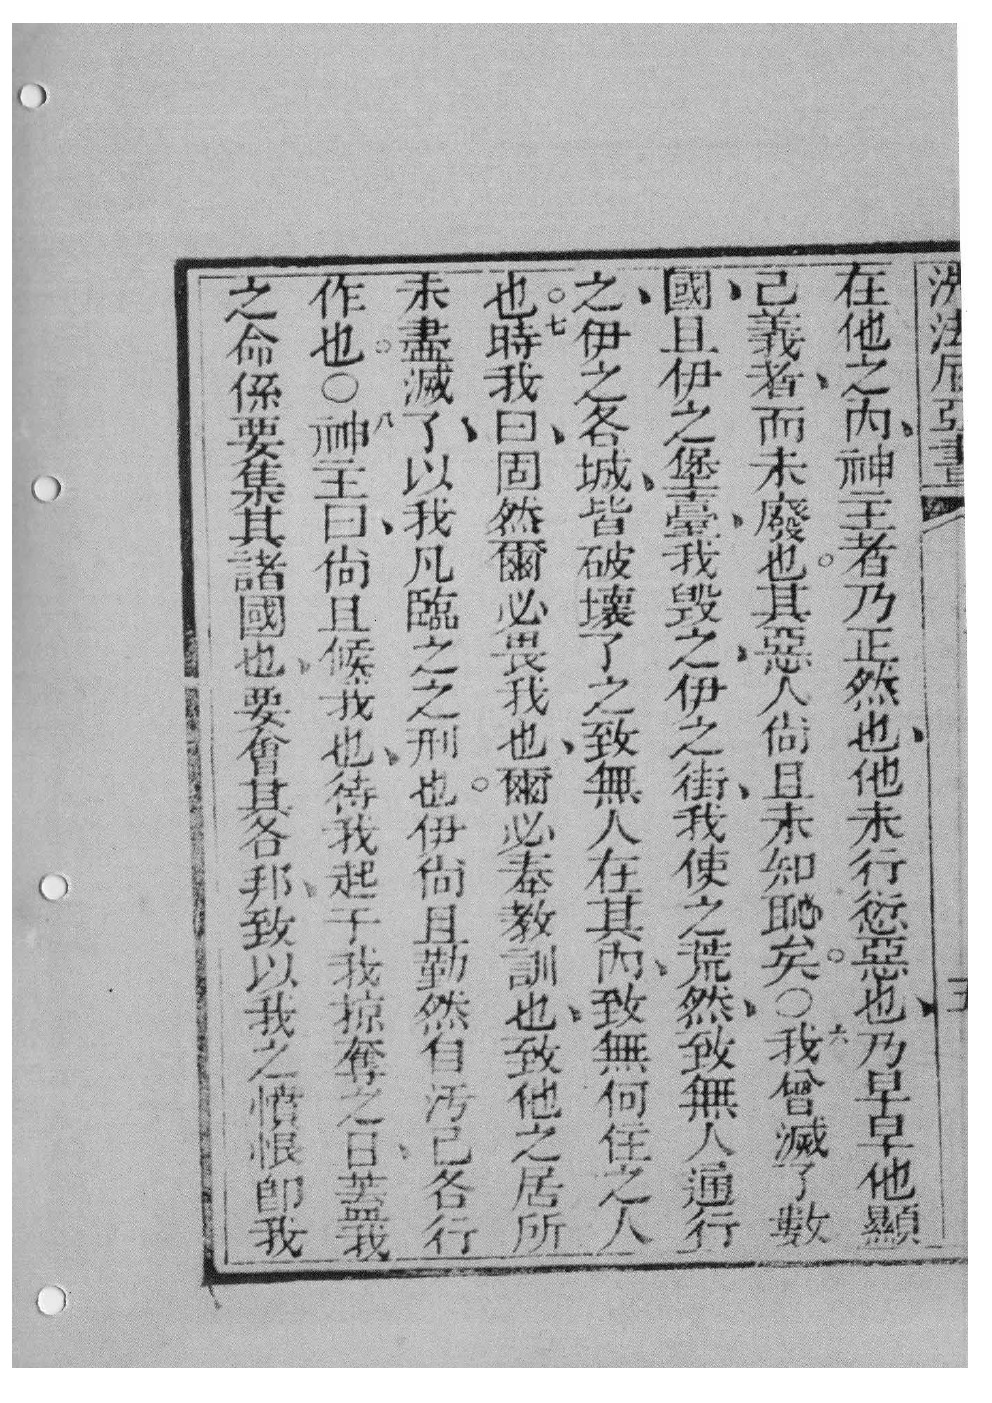 洗法尼亞書 五
在他之內、神主者乃正然也、他未行愆惡也、乃早早他顯
己義者、而未廢也。其惡人尙且未知恥矣。○六我曾滅了數
國、且伊之堡臺、我毀之、伊之街、我使之荒然、致無人通行
之、伊之各城、皆破壞了之致無人在其內、致無何住之人
也。○七時我曰、固然爾必畏我也、爾必奉教訓也、致他之居所
未盡滅了、以我凡臨之之刑也。伊尙且勤然自汚己各行
作也。○八神主曰、尙且候我也、待我起于我掠奪之日、蓋我
之命係要集其諸國也、要會其各邦、致以我之憤恨卽我